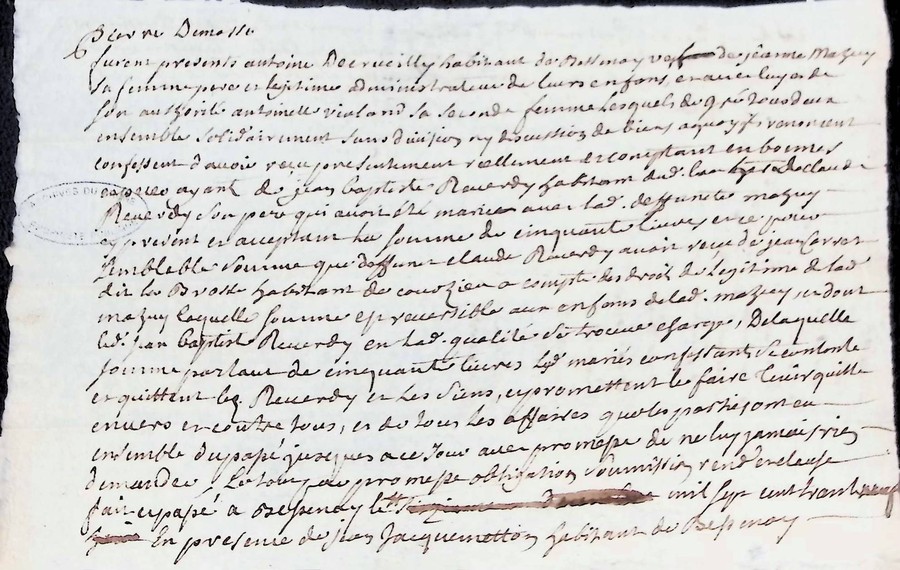 Pierre Demosse
furent presents antoine Decrueilly habitant de Bessenay veuf de jeanne Mazuy
sa femme pere et legitime administrateur de leurs enfans, et avec luy et de
son authorité antoinette vialand sa seconde femme lesquels de gré tous deux
ensemble solidairement sans division ny discussion de biens a quoy ils renoncent
confessent d'avoir reçu presentement reellement et comptant en bonnes
especes ayant de jean baptiste Reverdy habitant dud. lieu de claude
Reverdy son pere qui avoit été marié avec lad. deffuncte mazuy
cy present et acceptant la somme de cinquante livres et ce pour
semblable somme que deffunt claude Reverdy avoit reçue de jean
dit la Brosse habitant de couzieu a compte des droits de légitime de lad.
mazuy laquelle somme est reversible aux enfans de lad. mazuy, et dont
led. jean baptiste Reverdy en lad. qualité se trouve chargé, De laquelle
somme partant de cinquante livres led. mariés confessants se contente
et quittent led. Reverdy et les siens, et promettent le faire tenir quitte
envers et contre tous, et de tous les affaires que les parties ont eu
ensemble du passé jusques a ce jour avec promesse de ne luy jamais rien
demander, Le tout par promesse obligation soumission rend et clause
fait et passé a Bessenay le mil sept cent trente neuf
En presence de jean Jacquemetton habitant de Bessenay